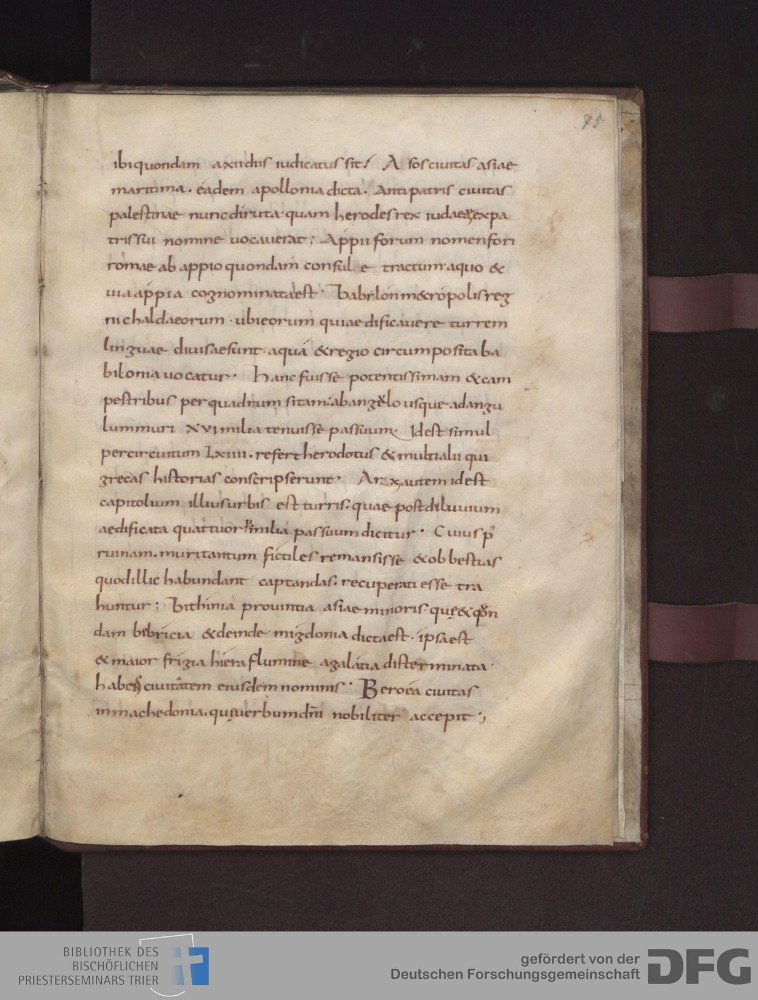 85
ibi quondam a xxrdiis iudicatus sit; Asos ciuitas asiae
maritima. eadem apollonia dicta. Antipatris ciuitas
palestinae nunc diruta quam herodes rex iudaeę ex pa
tris sui nomine uocauerat; Appii forum nomen fori
romae ab appio quondam consule tractum a quo &
uia appia cognominata est. Babilon m&ropolis reg
ni chaldaeorum. ubi eorum qui aedificauere turrem
linguae diuisae sunt. a qua & regio circumposita ba
bilonia uocatur. Hanc fuisse potentissimam & cam
pestribus per quadrum sitam. ab angulo usque ad angu
lum muri XVI milia tenuisse passuum. Id est simul
per circuitum LXIIII. refert herodotus & multi alii qui
grecas historias conscripserunt. Arx autem id est
capitolium illius urbis est turris. quae post diluuium
aedificata quattuor milia passuum dicitur. Cuius p̄
ruinam. muri tantum fictiles remansisse & ob bestias
quod illic habundant captandas. recuperati esse tra
huntur; Bithinia prouintia asiae minoris. quę & qōn
dam bebricia & deinde migdonia dicta est. ipsa est
& maior frigia hiera flumine a galatia disterminata.
habens ciuitatem eiusdem nominis. Beroea ciuitas
in machedonia. quę uerbum dn̄i nobiliter accepit;
BIBLIOTHEK DES
BISCHÖFLICHEN
PRIESTERSEMINARS TRIER
gefördert von der
Deutschen Forschungsgemeinschaft
DFG